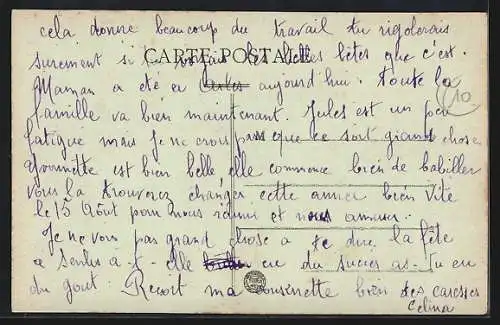 cela donne beaucoup du travail tu rigolerais
CARTE POSTALE
surement si tu voyais les belles bêtes que c'est.
Maman a été en aujourd'hui. Toute la
10
famille va bien maintenant. Jules est un peu
fatigué mais je ne crois pas que ce soit grand chose
M
est bien belle elle commence bien de babiller
vous la trouverez changer cette année bien vite
le 15 Août pour nous réunir et nous amuser.
Je ne vois pas grand chose a te dire, la fête
a Senlis a-t-elle eu du succes as-tu eu
du gout. Recoit ma cousinette bien des caresses
Celina